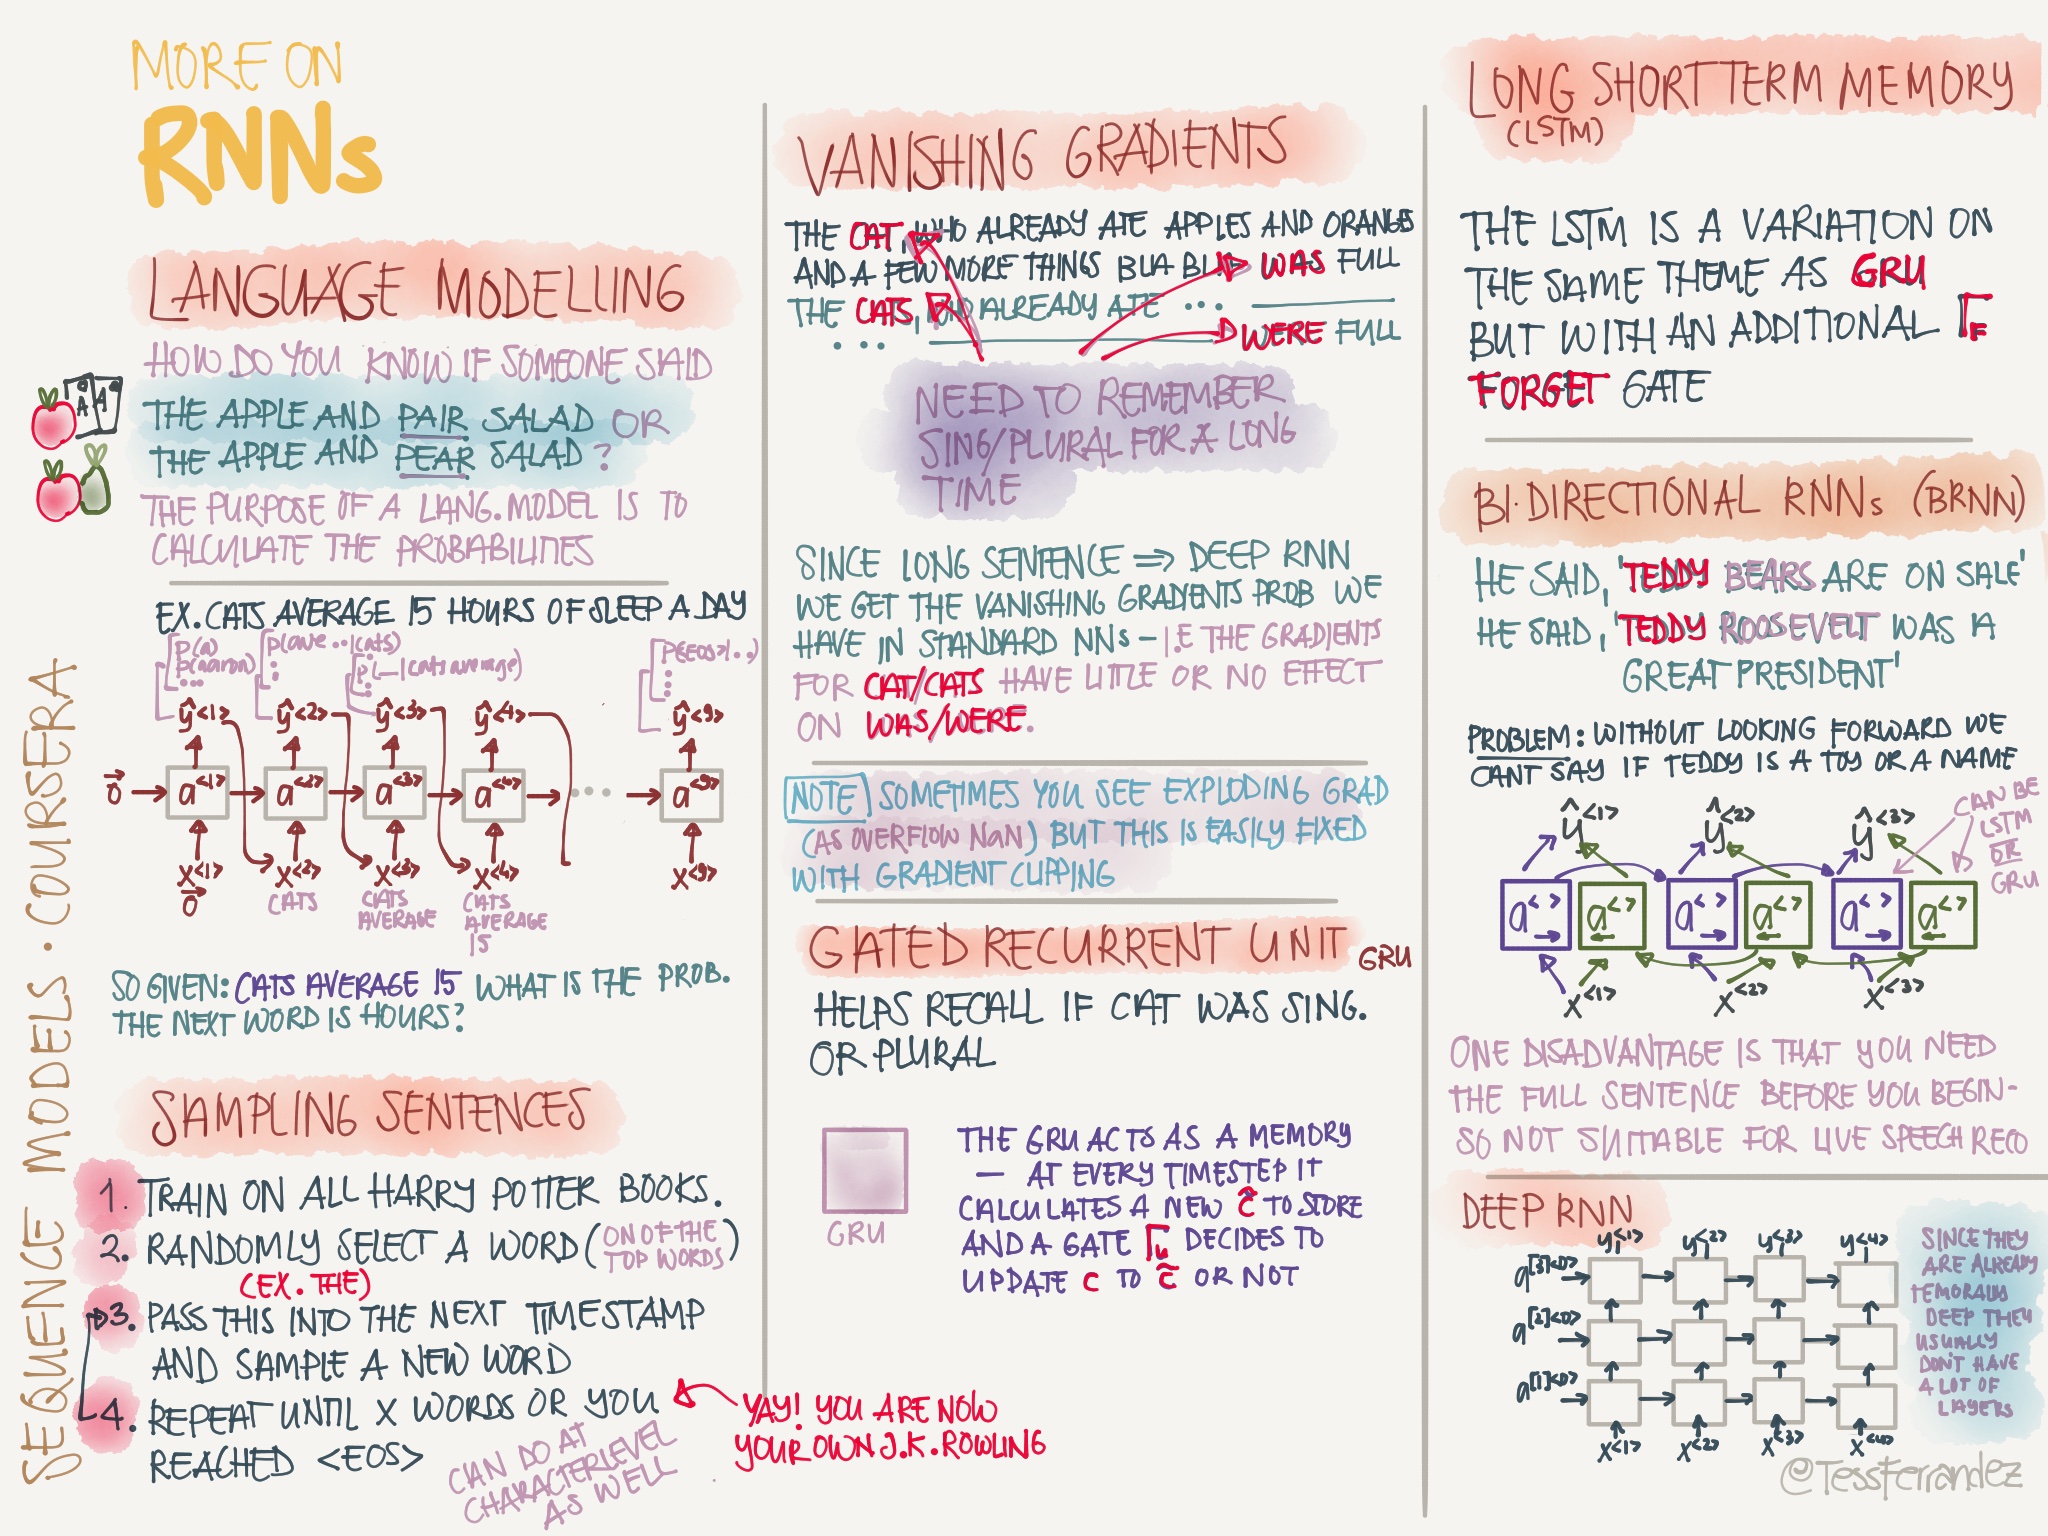 MORE ON
RNNs
LANGUAGE MODELLING
HOW DO YOU KNOW IF SOMEONE SAID
THE APPLE AND PAIR SALAD OR
THE APPLE AND PEAR SALAD ?
THE PURPOSE OF A LANG. MODEL IS TO
CALCULATE THE PROBABILITIES
EX. CATS AVERAGE 15 HOURS OF SLEEP A DAY
P(a)
P(aaron)
...
P(ave...|cats)
P(—|cats average)
P(EOS>|..)
ŷ<1> ŷ<2> ŷ<3> ŷ<4> ŷ<9>
0 a<1> a<2> a<3> a<4> ... a<9>
x<1> x<2> x<3> x<4> x<9>
0 CATS CATS AVERAGE CATS AVERAGE 15
SO GIVEN: CATS AVERAGE 15 WHAT IS THE PROB.
THE NEXT WORD IS HOURS?
SAMPLING SENTENCES
1. TRAIN ON ALL HARRY POTTER BOOKS.
2. RANDOMLY SELECT A WORD (ON OF THE TOP WORDS)
(EX. THE)
3. PASS THIS INTO THE NEXT TIMESTAMP
AND SAMPLE A NEW WORD
4. REPEAT UNTIL X WORDS OR YOU
REACHED <EOS>
CAN DO AT
CHARACTERLEVEL
AS WELL
YAY! YOU ARE NOW
YOUR OWN J.K. ROWLING
SEQUENCE MODELS · COURSERA
VANISHING GRADIENTS
THE CAT, WHO ALREADY ATE APPLES AND ORANGES
AND A FEW MORE THINGS BLA BLA WAS FULL
THE CATS, WHO ALREADY ATE ...
... WERE FULL
NEED TO REMEMBER
SING/PLURAL FOR A LONG
TIME
SINCE LONG SENTENCE => DEEP RNN
WE GET THE VANISHING GRADIENTS PROB WE
HAVE IN STANDARD NNs – I.E THE GRADIENTS
FOR CAT/CATS HAVE LITTLE OR NO EFFECT
ON WAS/WERE.
NOTE SOMETIMES YOU SEE EXPLODING GRAD
(AS OVERFLOW NaN) BUT THIS IS EASILY FIXED
WITH GRADIENT CLIPPING
GATED RECURRENT UNIT GRU
HELPS RECALL IF CAT WAS SING.
OR PLURAL
GRU
THE GRU ACTS AS A MEMORY
— AT EVERY TIMESTEP IT
CALCULATES A NEW c̃ TO STORE
AND A GATE Γu DECIDES TO
UPDATE c TO c̃ OR NOT
LONG SHORT TERM MEMORY
(LSTM)
THE LSTM IS A VARIATION ON
THE SAME THEME AS GRU
BUT WITH AN ADDITIONAL ΓF
FORGET GATE
BI-DIRECTIONAL RNNs (BRNN)
HE SAID, 'TEDDY BEARS ARE ON SALE'
HE SAID, 'TEDDY ROOSEVELT WAS A
GREAT PRESIDENT'
PROBLEM: WITHOUT LOOKING FORWARD WE
CANT SAY IF TEDDY IS A TOY OR A NAME
CAN BE
LSTM
OR
GRU
ŷ<1> ŷ<2> ŷ<3>
a<> a<> a<> a<> a<> a<>
x<1> x<2> x<3>
ONE DISADVANTAGE IS THAT YOU NEED
THE FULL SENTENCE BEFORE YOU BEGIN-
SO NOT SUITABLE FOR LIVE SPEECH RECO
DEEP RNN
y<1> y<2> y<3> y<4>
a[3]<0>
a[2]<0>
a[1]<0>
x<1> x<2> x<3> x<4>
SINCE THEY
ARE ALREADY
TEMORALLY
DEEP THEY
USUALLY
DON'T HAVE
A LOT OF
LAYERS
@TessFerrandez